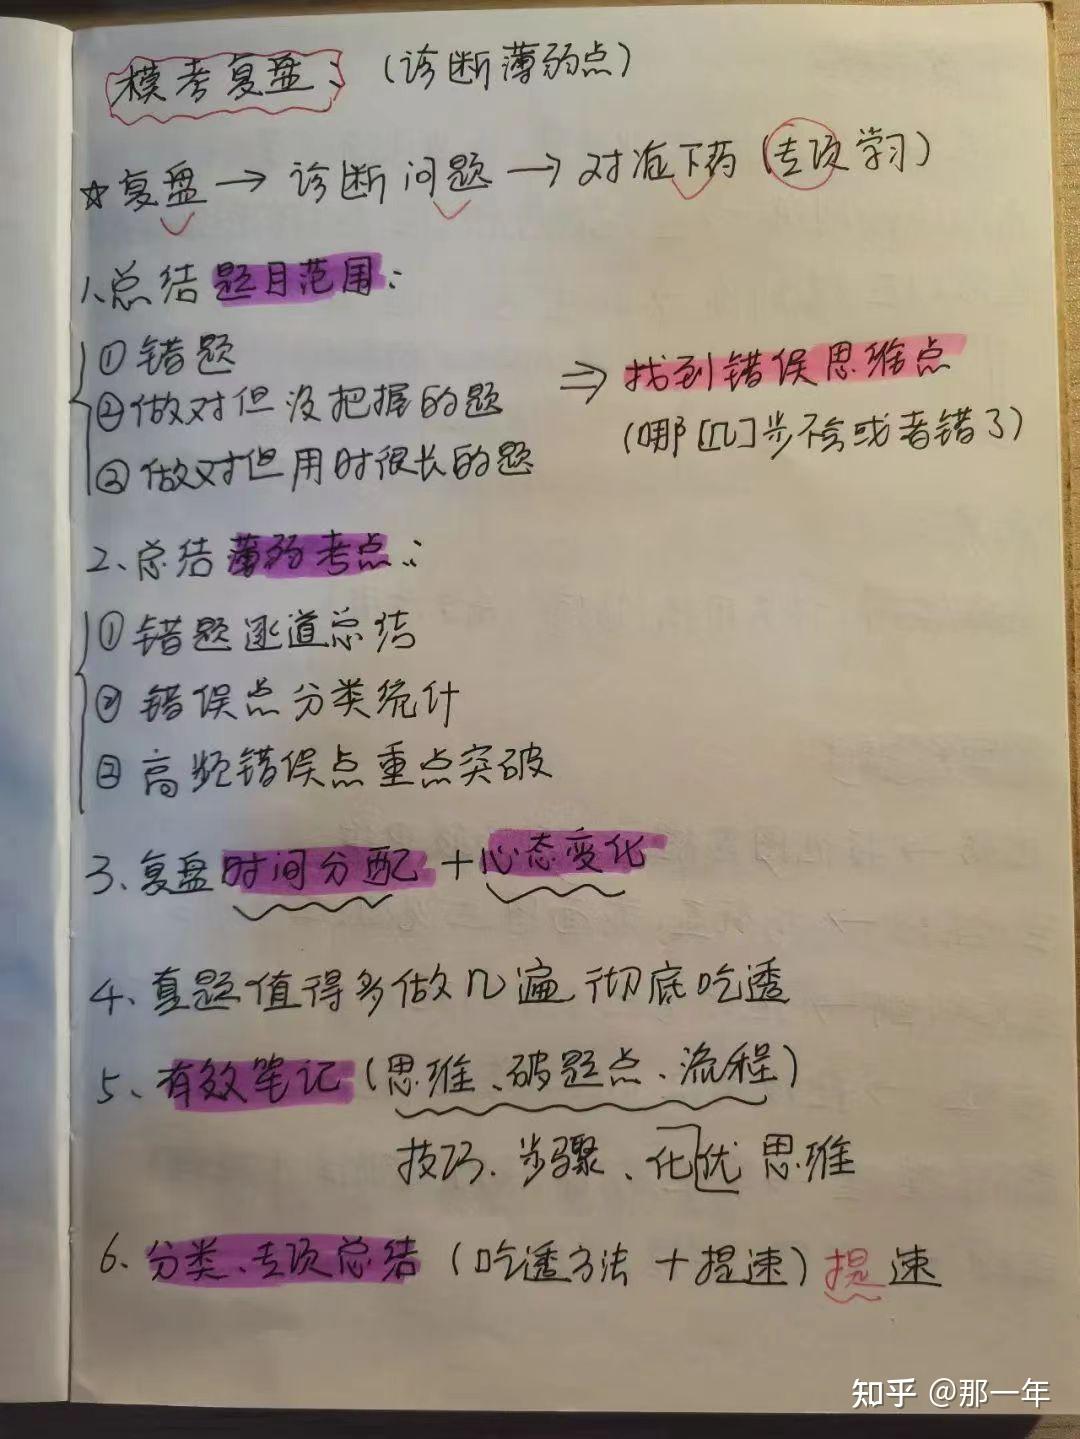 模考复盘：（诊断薄弱点）
☆复盘→诊断问题→对症下药（专项学习）
1、总结题目范围：
①错题
②做对但没把握的题
③做对但用时很长的题
⇒找到错误思维点
（哪[几]步不会或者错了）
2、总结薄弱考点：
①错题逐道总结
②错误点分类统计
③高频错误点重点突破
3、复盘时间分配+心态变化
4、真题值得多做几遍 彻底吃透
5、有效笔记（思维、破题点、流程）
技巧、步骤、化优思维
6、分类、专项总结（吃透方法+提速）提速
知乎 @那一年